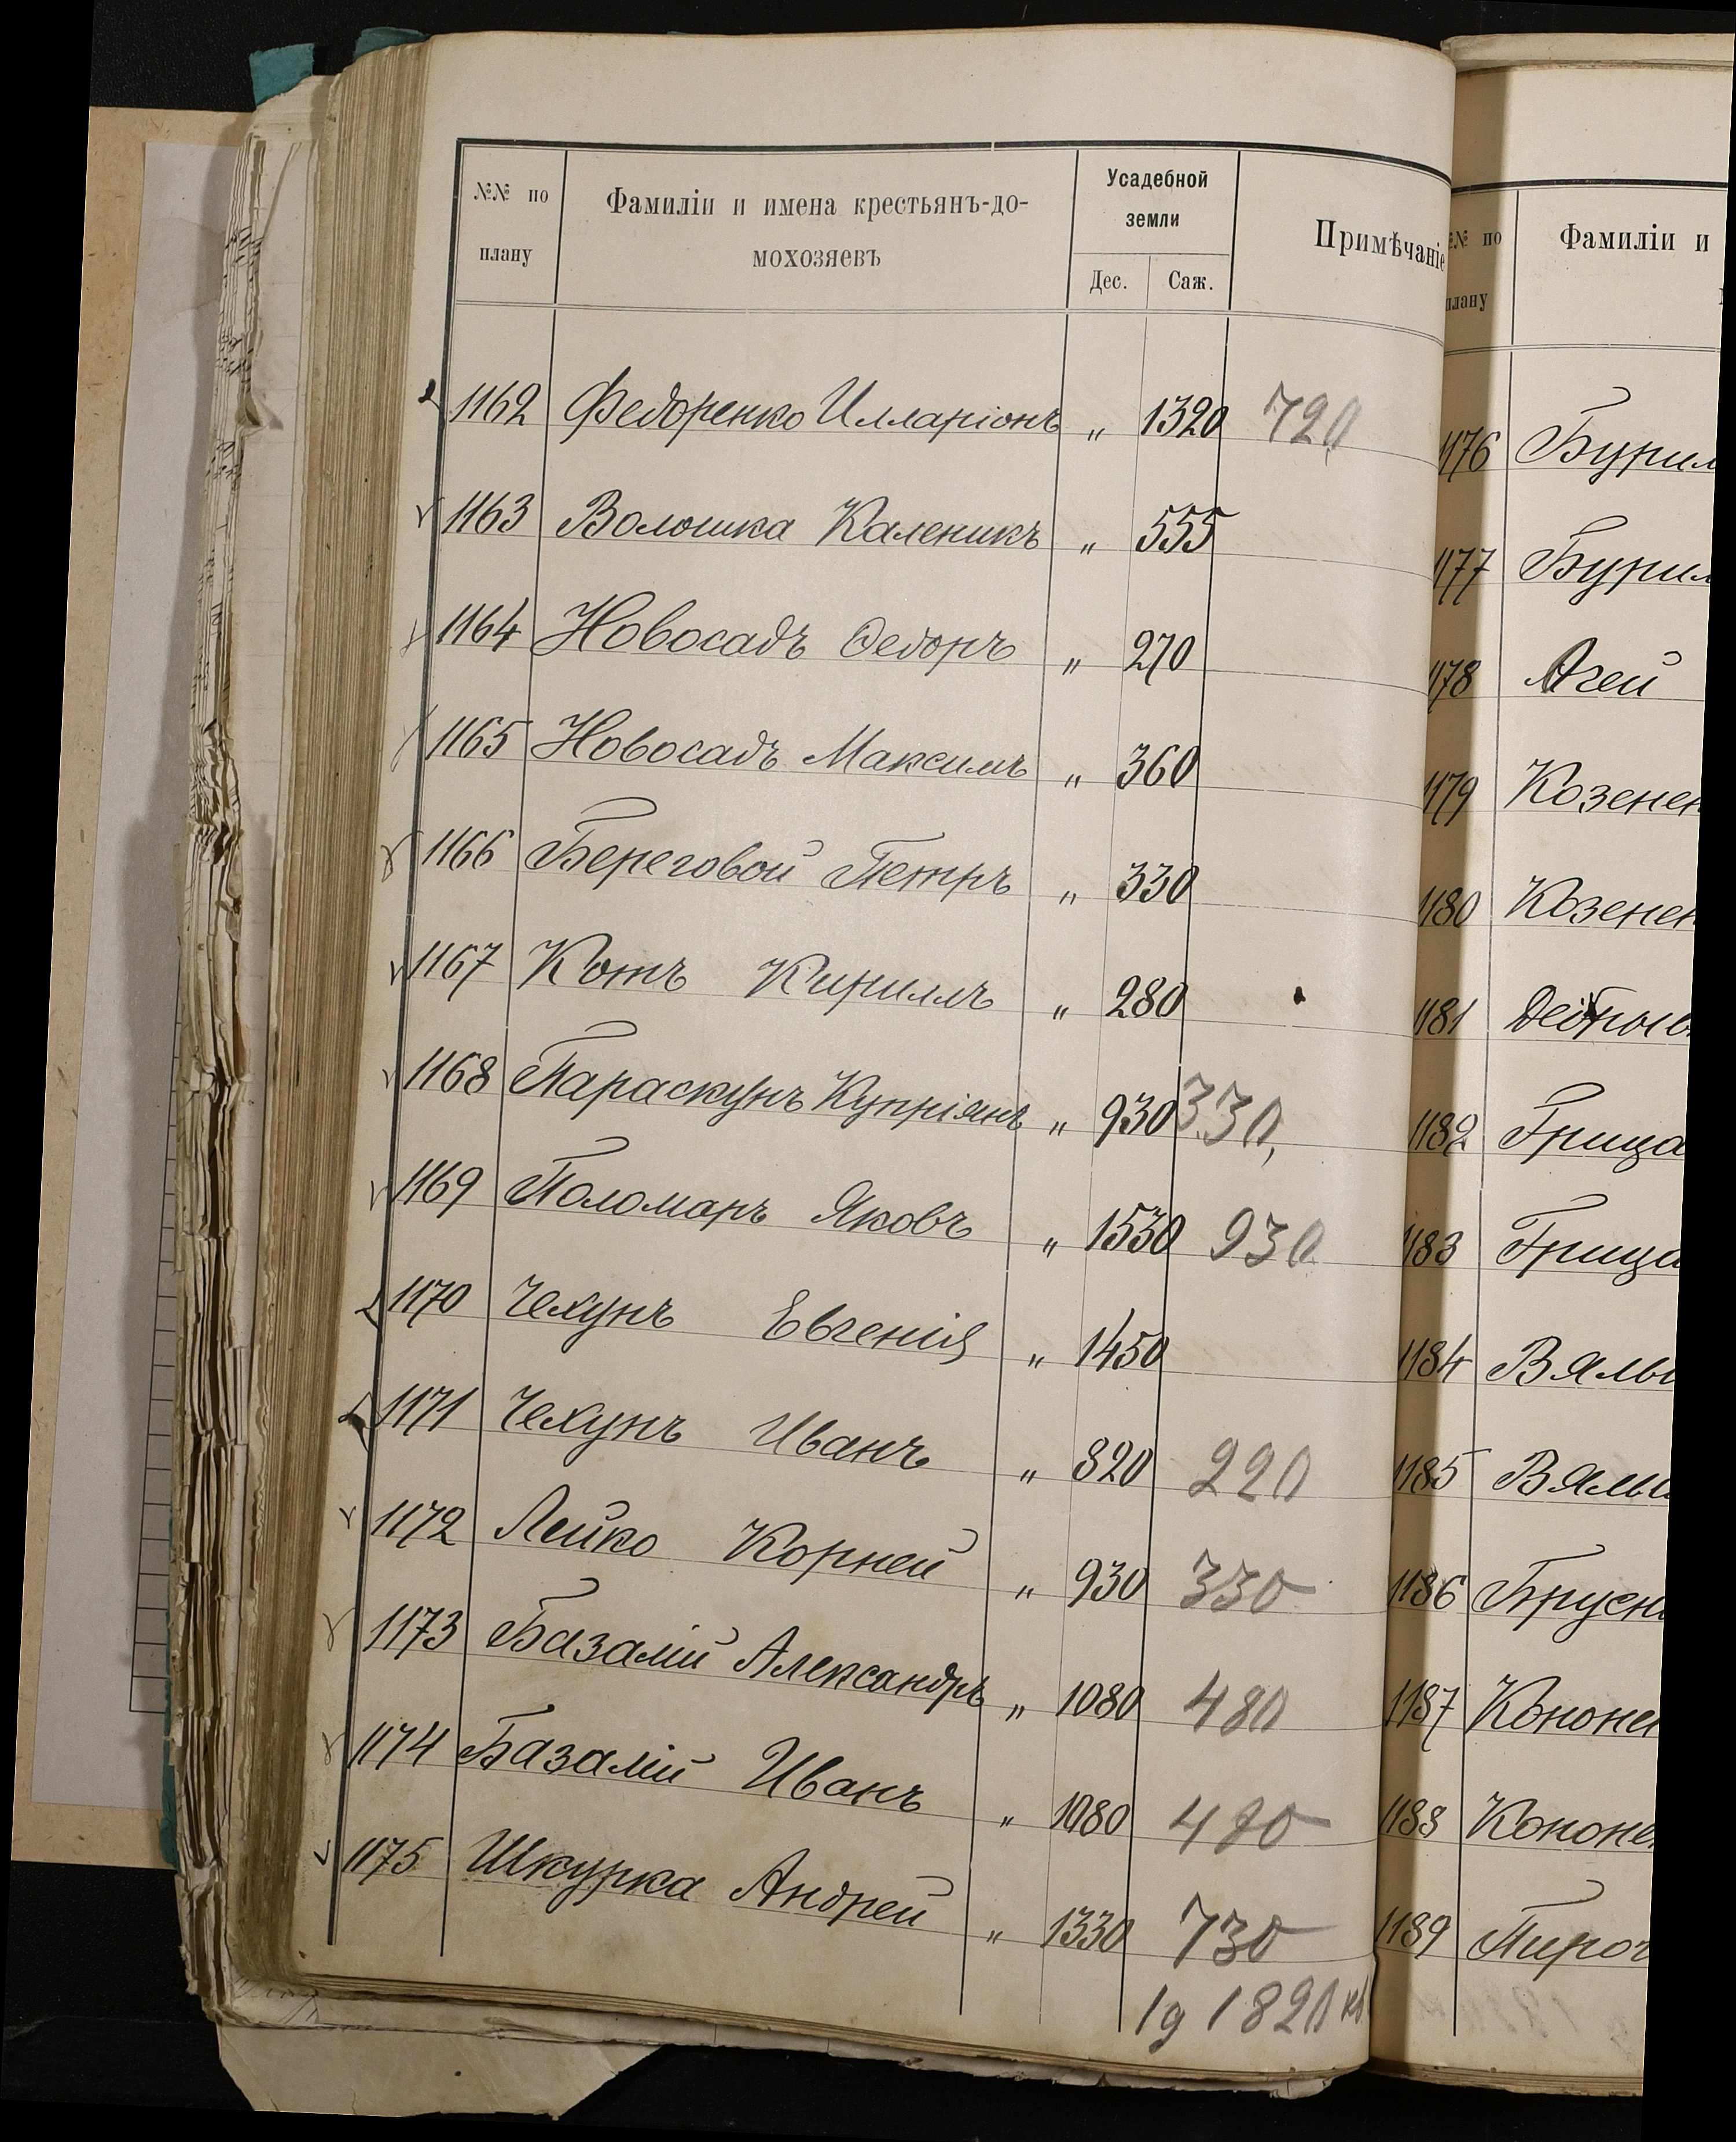 №№ по
плану
Фамиліи и имена крестьянъ-до-
мохозяевъ
Усадебной
земли
Дес. Саж.
Примѣчаніе
1162 Федоренко Илларіонъ „ 1320 720
1163 Волошка Каленикъ „ 555
1164 Новосадъ Ѳедоръ „ 270
1165 Новосадъ Максимъ „ 360
1166 Береговой Петръ „ 330
1167 Котъ Кириллъ „ 280
1168 Параскунъ Купріянъ „ 930 330,
1169 Поломаръ Яковъ „ 1530 930
1170 Чехунъ Евгенія „ 1450
1171 Чехунъ Иванъ „ 820 220
1172 Лейко Корней „ 930 330
1173 Базалій Александръ „ 1080 480
1174 Базалій Иванъ „ 1080 480
1175 Шкурка Андрей „ 1330 730
1g 1820 кв
№№ по
плану
Фамиліи и
1176 Бурил
1177 Бурил
1178 Агей
1179 Козенен
1180 Козенен
1181
1182 Грица
1183 Грица
1184 Вялы
1185 Вялы
1186 Брусн
1187 Кононе
1188 Кононе
1189 Пироч